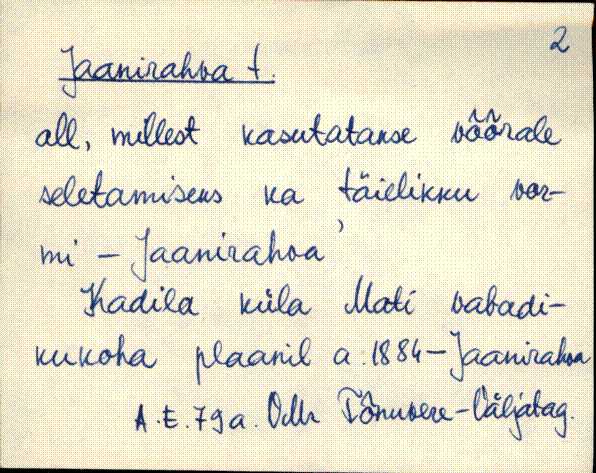 2
Jaanirahva t.
all, millest kasutatakse võõrale
seletamiseks ka täielikku vor-
mi – Jaanirahva’
Kadila küla Mati vabadi-
kukoha plaanil a. 1884 – Jaanirahva
A. E. 79 a. Odh Tõnuvere-Väljatag.